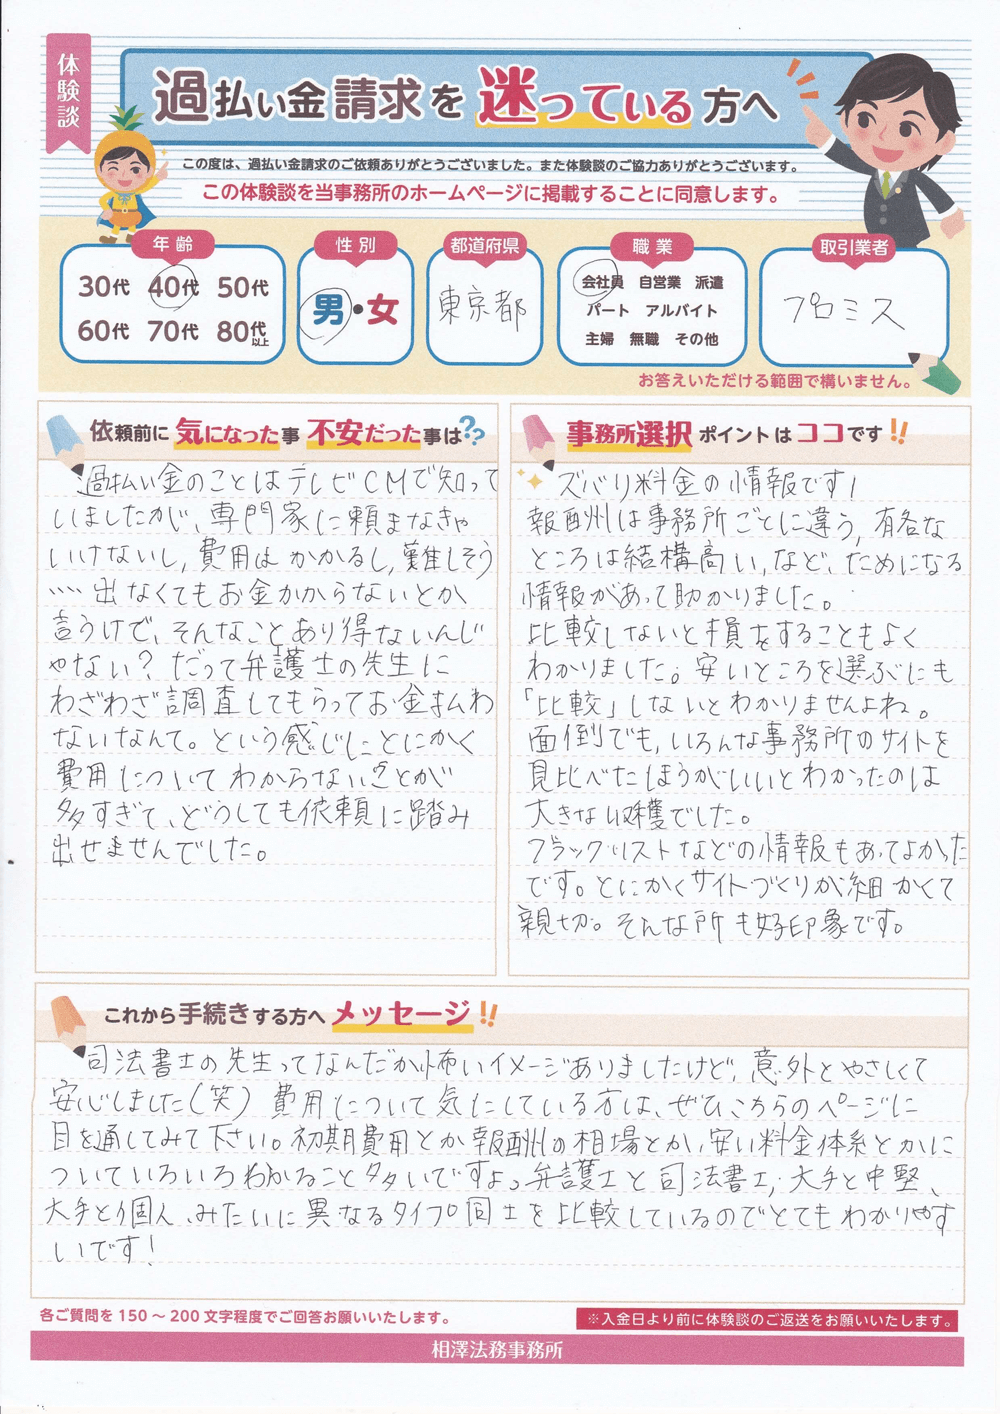 体験談
過払い金請求を迷っている方へ
この度は、過払い金請求のご依頼ありがとうございました。また体験談のご協力ありがとうございます。
この体験談を当事務所のホームページに掲載することに同意します。
年齢
30代 40代 50代
60代 70代 80代以上
性別
男・女
都道府県
東京都
職業
会社員 自営業 派遣
パート アルバイト
主婦 無職 その他
取引業者
プロミス
お答えいただける範囲で構いません。
依頼前に気になった事 不安だった事は??
過払い金のことはテレビCMで知って
いましたが、専門家に頼まなきゃ
いけないし、費用はかかるし、難しそう
…… 出なくてもお金かからないとか
言うけで、そんなことあり得ないんじ
ゃない？だって弁護士の先生に
わざわざ調査してもらってお金払わ
ないなんて。という感じでとにかく
費用についてわからないことが
多すぎて、どうしても依頼に踏み
出せませんでした。
事務所選択ポイントはココです!!
ズバリ料金の情報です！
報酬は事務所ごとに違う、有名な
ところは結構高い、など、ためになる
情報があって助かりました。
比較しないと損をすることもよく
わかりました。安いところを選ぶにも
「比較」しないとわかりませんよね。
面倒でも、いろんな事務所のサイトを
見比べたほうがいいとわかったのは
大きな収穫でした。
ブラックリストなどの情報もあってよかった
です。とにかくサイトづくりが細かくて
親切。そんな所も好印象です。
これから手続きする方へメッセージ!!
司法書士の先生ってなんだか怖いイメージありましたけど、意外とやさしくて
安心しました（笑）費用について気にしている方は、ぜひこちらのページに
目を通してみて下さい。初期費用とか報酬の相場とか、安い料金体系とかに
ついていろいろわかること多いですよ。弁護士と司法書士、大手と中堅、
大手と個人、みたいに異なるタイプ同士を比較しているのでとてもわかりやす
いです！
各ご質問を150～200文字程度でご回答お願いいたします。
※入金日より前に体験談のご返送をお願いいたします。
相澤法務事務所